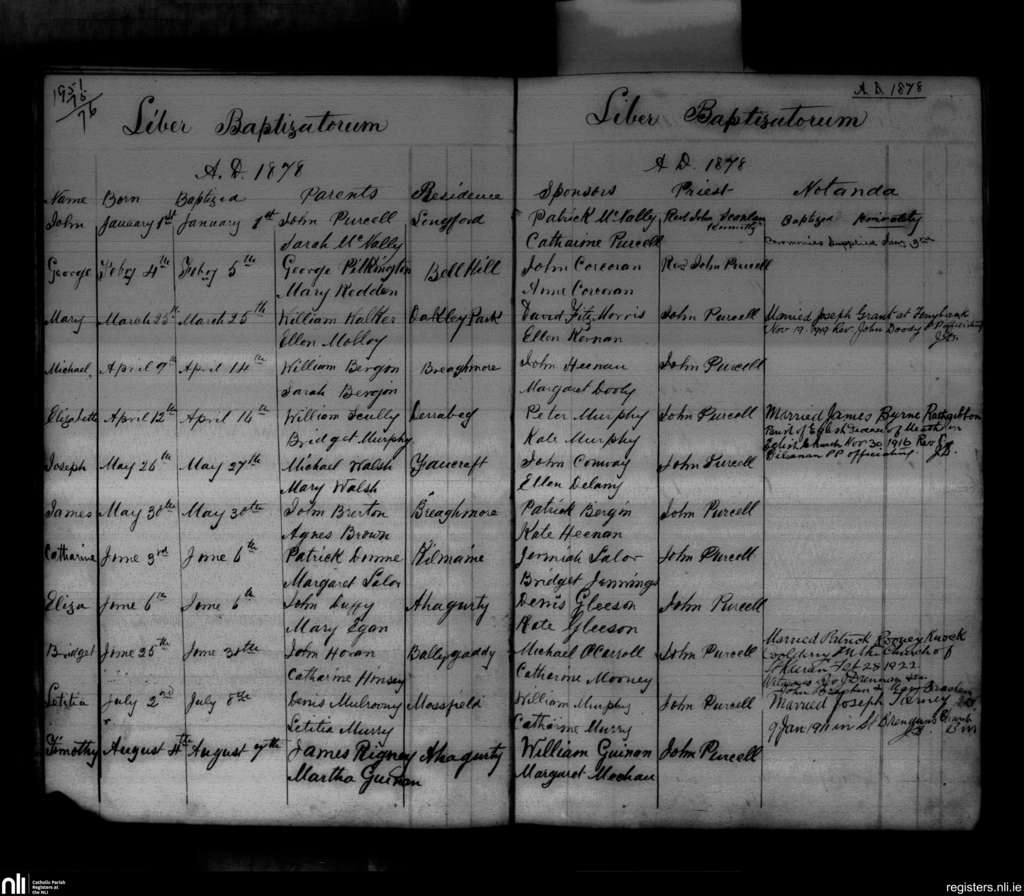 1951
75
76
Liber Baptizatorum
A. D. 1878
Name Born Baptized Parents Residence
John January 1st January 1st John Purcell Longford
Sarah McNally
George Feby 4th Feby 5th George Pilkington Bell Hill
Mary Redden
Mary March 25th March 25th William Walker Oakley Park
Ellen Molloy
Michael April 9th April 14th William Bergin Breaghmore
Sarah Bergin
Elizabeth April 12th April 16th William Scully Derrabeg
Bridget Murphy
Joseph May 26th May 27th Michael Walsh Fancroft
Mary Walsh
James May 30th May 30th John Brerton Breaghmore
Agnes Brown
Catharine June 3rd June 6th Patrick Dunne Kilmaine
Margaret Lalor
Eliza June 6th June 6th John Duffy Ahagurty
Mary Egan
Bridget June 25th June 30th John Horan Ballygaddy
Catharine Hinsey
Letitia July 2nd July 8th Denis Mulrowny Mossfield
Letitia Murry
Timothy August 4th August 7th James Rigney Ahagurty
Martha Guinan
A. D. 1878
Liber Baptizatorum
A D. 1878
Sponsors Priest Notanda
Patrick McNally Revd John Scanlan Baptized privately
Catharine Purcell Ceremonies supplied Jany 3rd
John Corcoran Revd John Purcell
Anne Corcoran
David FitzMorris John Purcell Married Joseph Grant at Ferrybank
Ellen Kernan Nov 19. 1919 Rev John Doody P P officiating
John Heenan John Purcell
Margaret Dooly
Peter Murphy John Purcell Married James Byrne Rathgibbon
Kate Murphy Parish of Eglish Diocese of Meath in
Eglish Church Nov 30 1916 Rev
PP officiating
John Conway John Purcell
Ellen Delany
Patrick Bergin John Purcell
Kate Heenan
Jermiah Lalor John Purcell
Bridget Jennings
Denis Gleeson John Purcell
Kate Gleeson
Married Patrick Rooney Knock
Michael O'Carroll John Purcell in the Church of
Catharine Mooney St Kieran Feb 28 1922
William Murphy John Purcell Married Joseph Tierney
Catharine Murry 9 Jan 1911 in St Brendans
William Guinan John Purcell
Margaret Meehan
nli Catholic Parish
Registers at
the NLI
registers.nli.ie